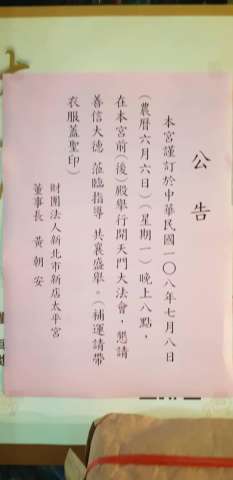 公告
本宮謹訂於中華民國一〇八年七月八日
(農曆六月六日)(星期一)晚上八點，
在本宮前(後)殿舉行開天門大法會，懇請
善信大德 蒞臨指導 共襄盛舉。(補運請帶
衣服蓋聖印)
財團法人新北市新店太平宮
董事長 黃朝安